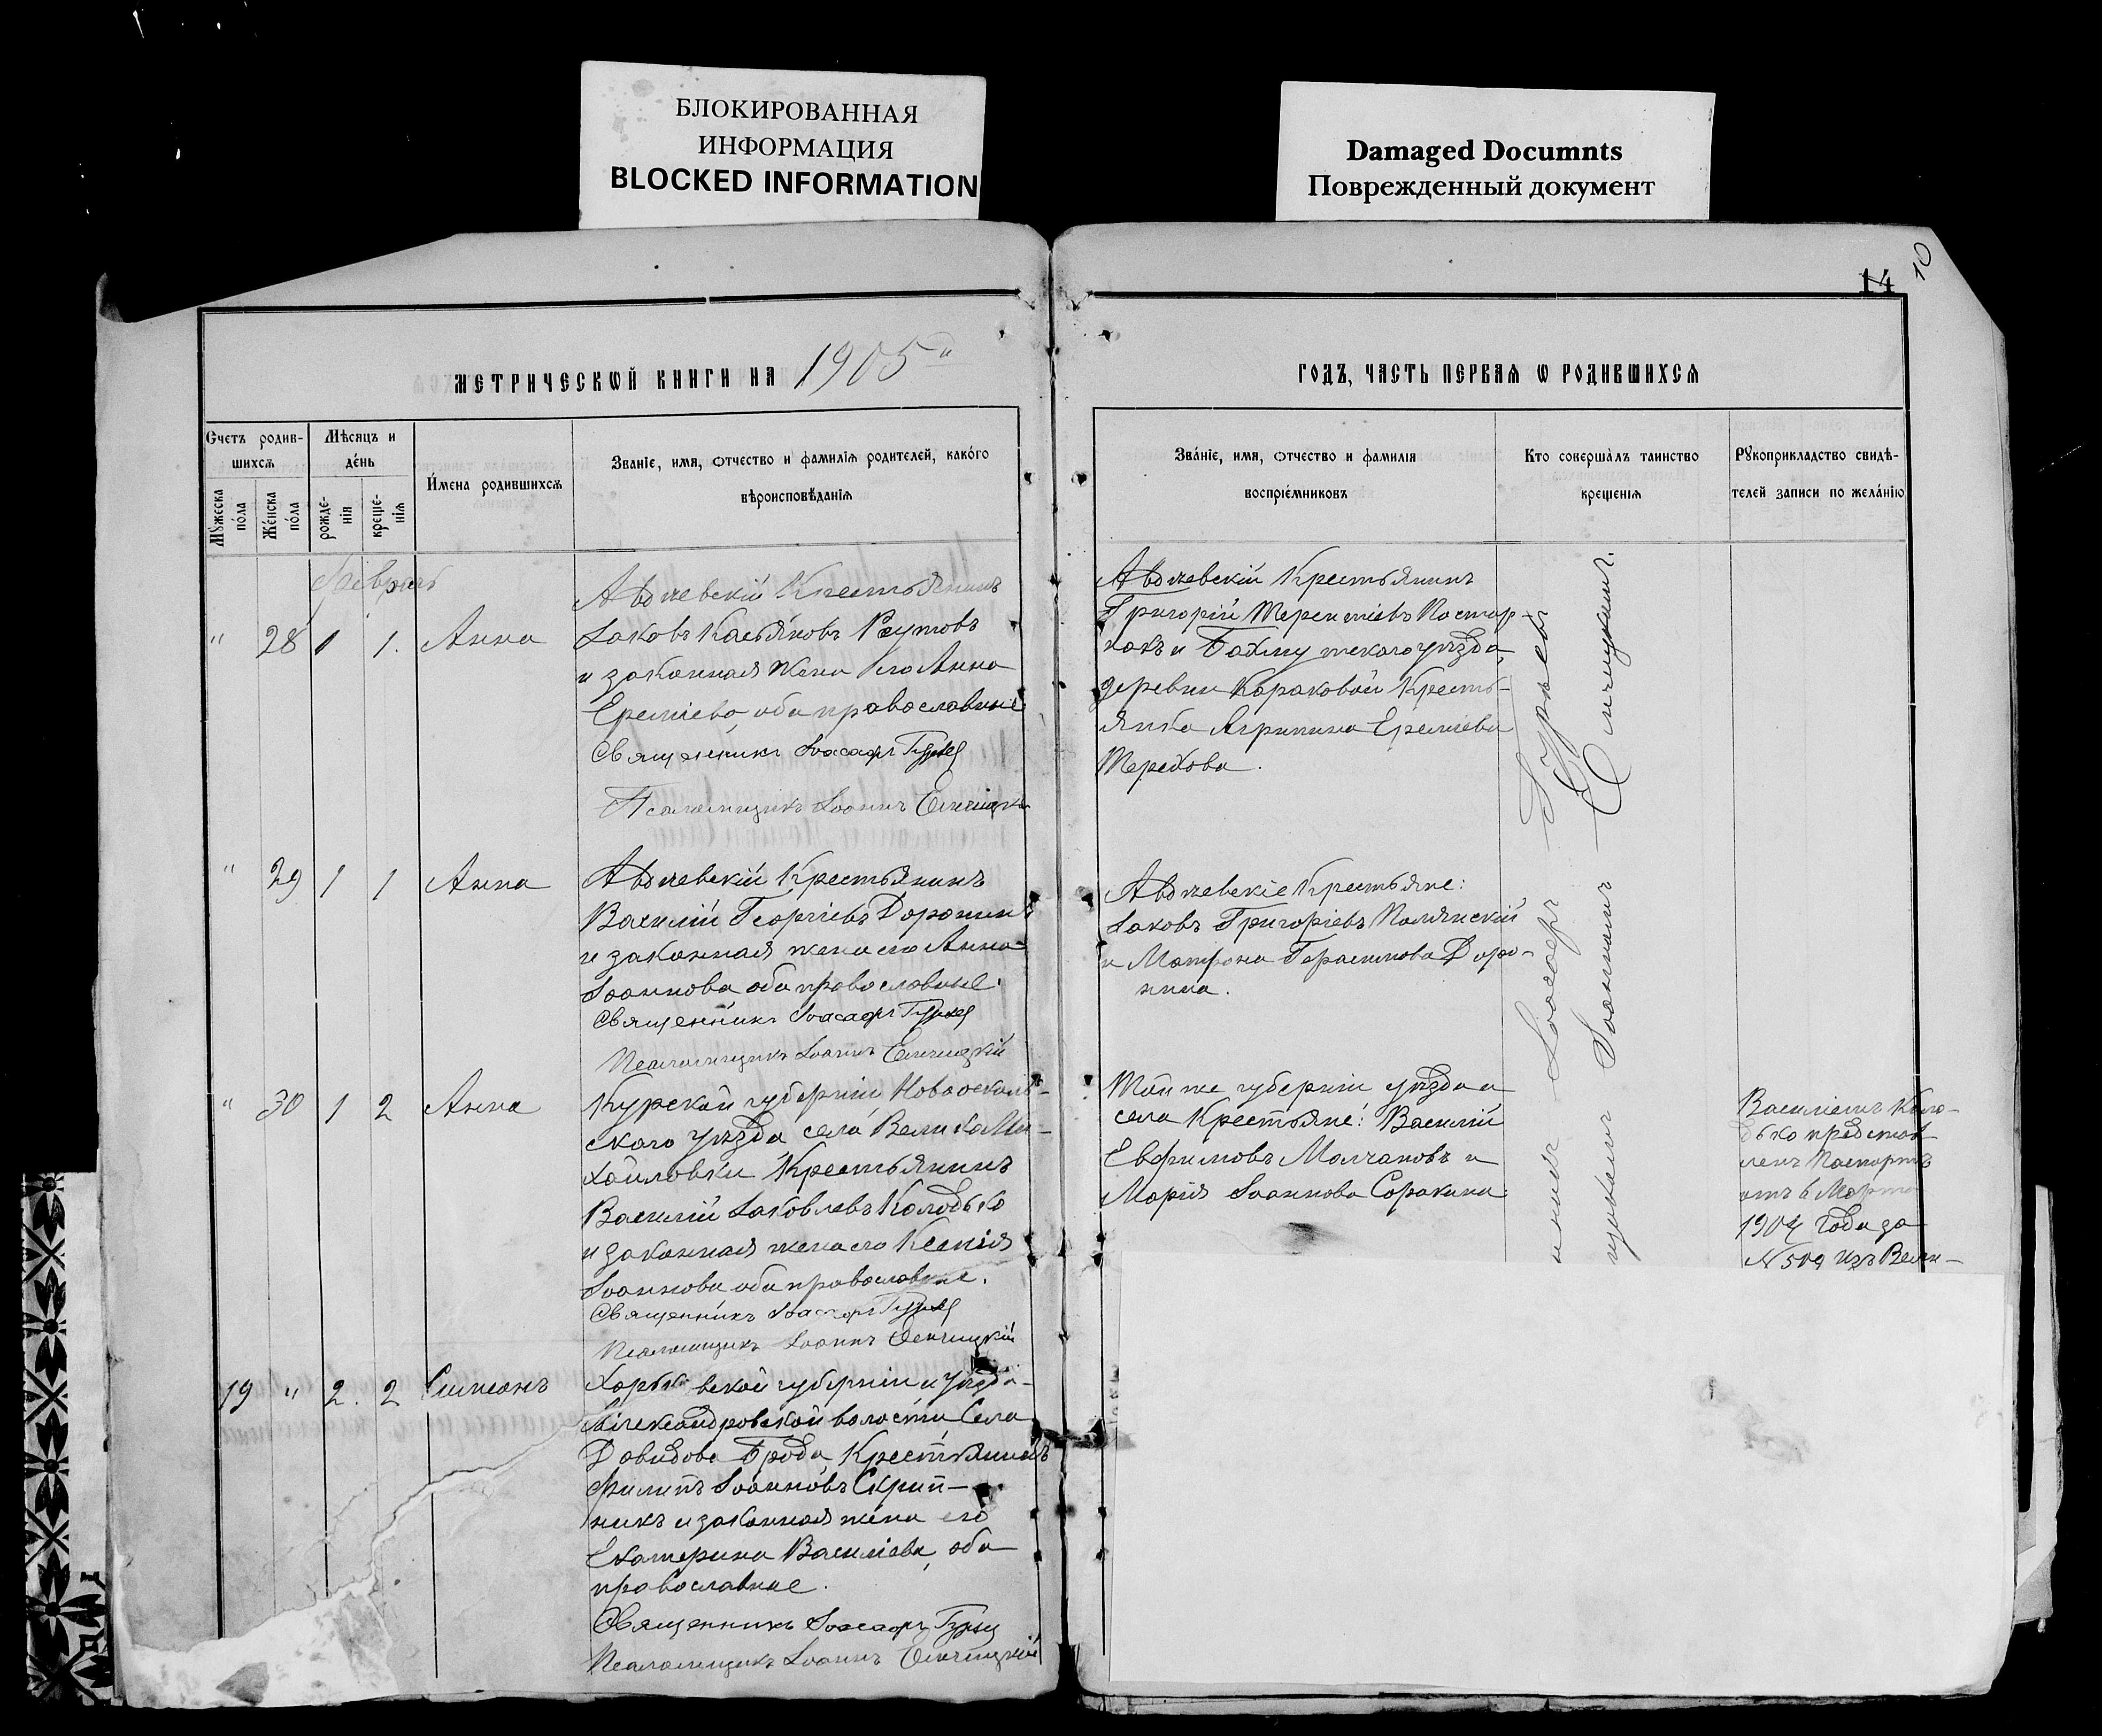 БЛОКИРОВАННАЯ
ИНФОРМАЦИЯ
BLOCKED INFORMATION
Damaged Documnts
Поврежденный документ
14
10
МЕТРИЧЕСКѠЙ КНИГИ НА 1905
ГОДЪ, ЧАСТЬ ПЕРВАЯ Ѡ РОДИВШИХСѦ
Счетъ родив-
шихсѧ
Мѹжеска
по́ла
Же́нска
по́ла
Мѣсяцъ и
де́нь
рожде-
нія
креще-
нія
И́мена родившихсѧ
Званіе, имя, ѻтчество и фамилія родителей, како́го
вѣроисповѣ́данія
Зва́ніе, имя, ѻтчество и фамилія
воспріе́мниковъ
Кто соверша́лъ таинство
крещенія
Рꙋкоприкладство свидѣ-
телей записи по жела́нію
Февраль
" 28 1 1. Анна
Авдѣевскій Крестьянинъ
Іаковъ Касьяновъ Реутовъ
и законная жена его Анна
Ереміева оба православные
Священникъ Іоасафъ Гурьев
Псаломщикъ Іоаннъ
Авдѣевскій Крестьянинъ
Григорій Терентіевъ Постор-
накъ и Бахмутскаго уѣзда,
деревни Караковой Кресть-
янка Агрипина Ереміева
Терехова.
" 29 1 1 Анна
Авдѣевскій Крестьянинъ
Василій Георгіевъ Доронинъ
и законная жена его Анна
Іоаннова оба православные.
Священникъ Іоасафъ Гурьев
Псаломщикъ Іоаннъ
Авдѣевскіе Крестьяне:
Іаковъ Григоріевъ Полянскій
и Матрона Герасимова Доро-
нина.
" 30 1 2 Анна
Курской губерніи Новооскол-
скаго уѣзда села ВеликоМи-
хайловки Крестьянинъ
Василій Іаковлевъ Колодько
и законная жена его Ксенія
Іоаннова оба православные.
Священникъ Іоасафъ Гурьев
Псаломщикъ Іоаннъ
Той же губерніи уѣзда и
села Крестьяне: Василій
Евфимовъ Молчановъ и
Марія Іоаннова Соракина
Василіемъ Коло-
дько представ
ленъ Паспортъ
отъ 6 Марта
1904 года за
№ 509 изъ Вели-
19 " 2. 2 Симеонъ
Харьковской губерніи и уѣзда
Александровской волости Села
Давидова Брода, Крестьянинъ
Филипъ Іоанновъ Скрип-
никъ и законная жена его
Екатерина Василіева, оба
православные.
Священникъ Іоасафъ Гурьев
Псаломщикъ Іоаннъ
Іоасафъ Гурьевъ
Іоаннъ